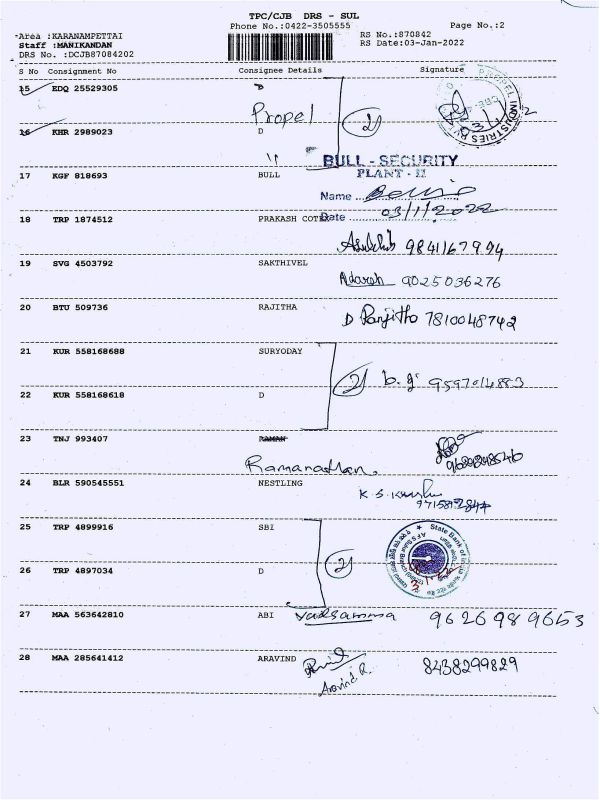 TPC/CJB DRS - SUL
Phone No.:0422-3505555 Page No.:2
Area :KARANAMPETTAI RS No.:870842
Staff :MANIKANDAN RS Date:03-Jan-2022
DRS No. :DCJB87084202
S No Consignment No Consignee Details Signature
15 EDQ 25529305 D
Propel 2
16 KHR 2989023 D
BULL - SECURITY
PLANT - II
17 KGF 818693 BULL
Name
Date 03/1/2022
18 TRP 1874512 PRAKASH COTE
9841167994
19 SVG 4503792 SAKTHIVEL
Adarsh 9025036276
20 BTU 509736 RAJITHA
D Ranjitha 7810048742
21 KUR 558168688 SURYODAY
2 b.g 9597014883
22 KUR 558168618 D
23 TNJ 993407 RAMAN
Ramanathan.
24 BLR 590545551 NESTLING
K.S.
25 TRP 4899916 SBI
State Bank of India
2
26 TRP 4897034 D
27 MAA 563642810 ABI Valsamma 9626989653
28 MAA 285641412 ARAVIND 8438299829
Aravind R.